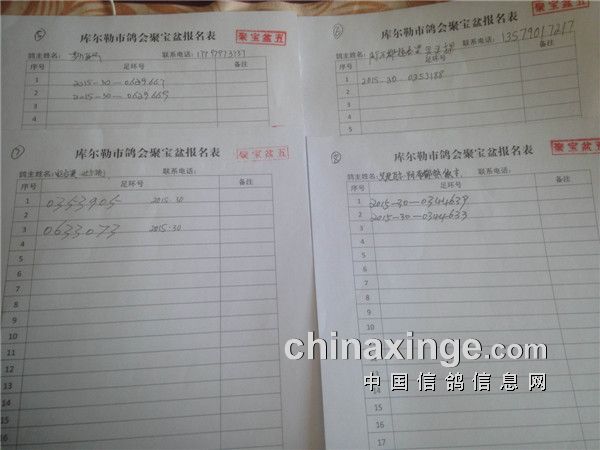 ⑤
库尔勒市鸽会聚宝盆报名表
聚宝盆五
鸽主姓名: 联系电话:
序号 足环号 备注
1 2015-30-0629667
2 2015-30-0629669
3
4
5
⑥
库尔勒市鸽会聚宝盆报名表
聚宝盆五
鸽主姓名: 联系电话: 13579017217
序号 足环号 备注
1 2015-30-0253188
2
3
4
5
6
⑦
库尔勒市鸽会聚宝盆报名表
聚宝盆五
鸽主姓名: 联系电话:
序号 足环号 备注
1 0353905 2015.30
2
3 0633073 2015.30
4
5
6
7
8
9
10
11
12
13
14
15
16
17
⑧
库尔勒市鸽会聚宝盆报名表
聚宝盆五
鸽主姓名: 联系电话:
序号 足环号 备注
1 2015-30-0344639
2 2015-30-0344633
3
4
5
6
7
8
9
10
11
12
13
14
15
17
chinaxinge.com
中国信鸽信息网